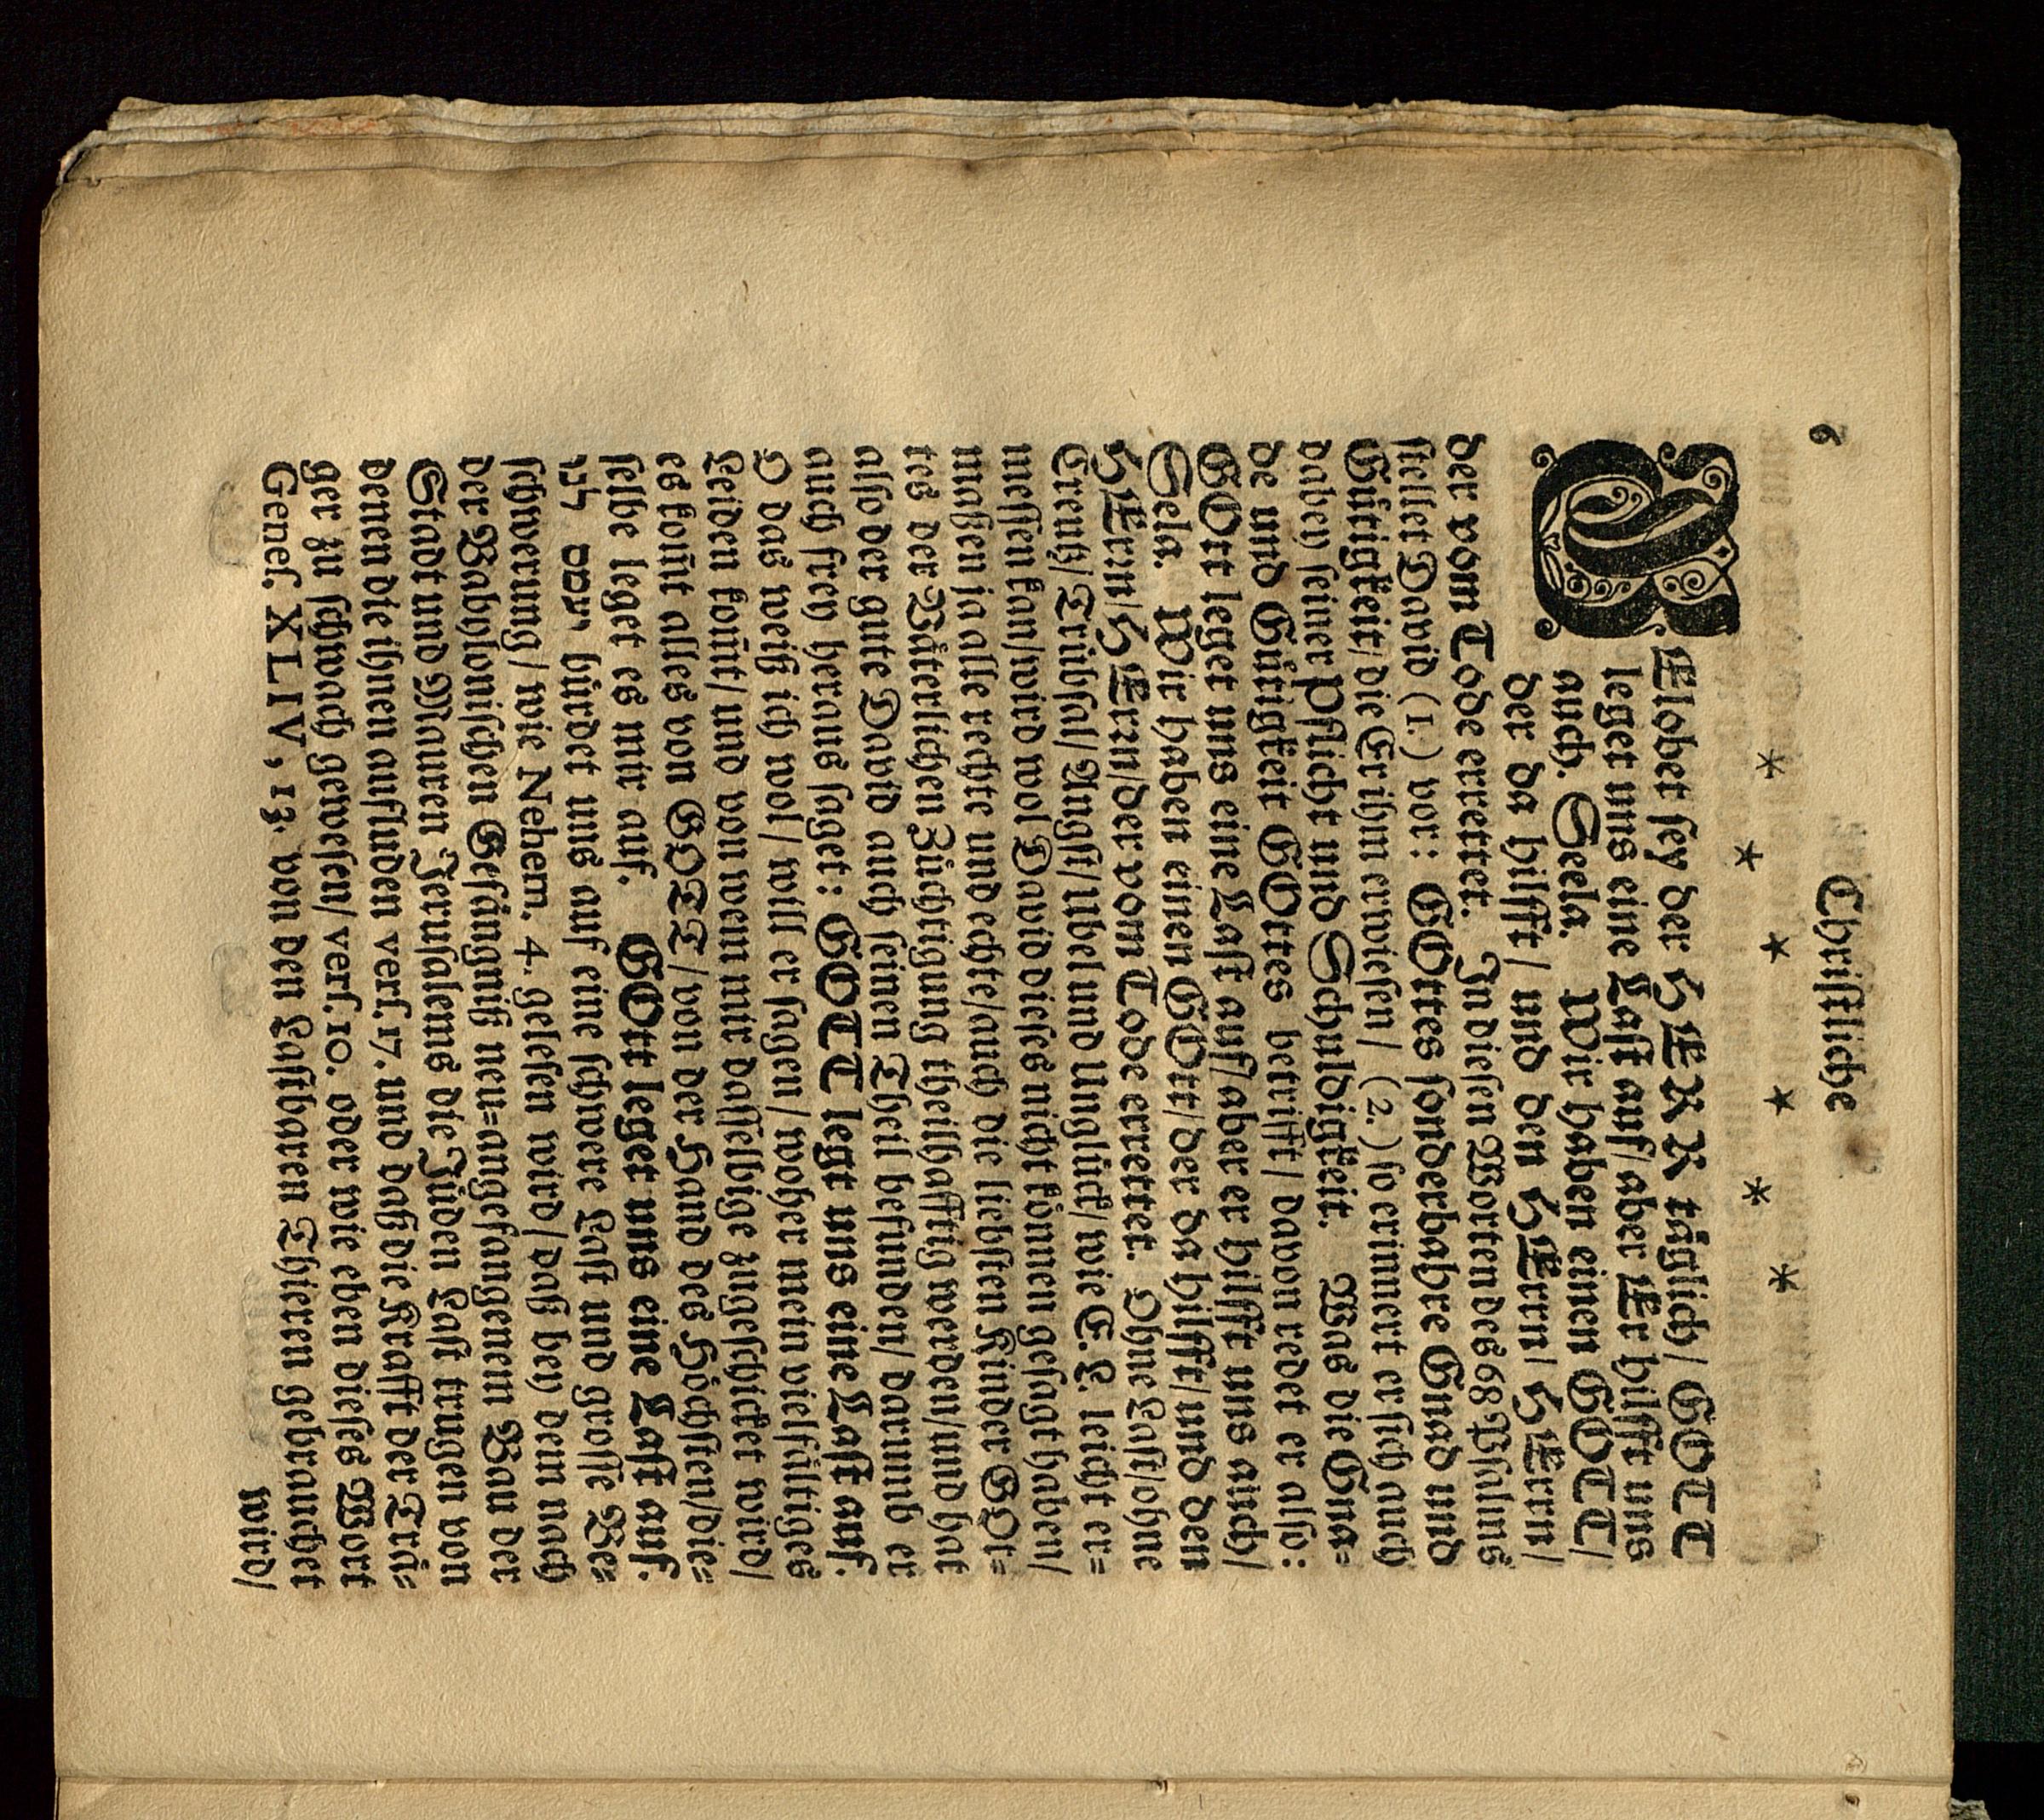 6
Christliche
* * * * * *
GElobet sey der HERR täglich / GOTT
leget uns eine Last auf / aber Er hilfft uns
auch. Seela. Wir haben einen GOTT /
der da hilfft / und den HErrn / HErrn /
der vom Tode errettet. In diesen Worten des 68 Psalms
stellet David (1.) vor: GOttes sonderbahre Gnad und
Gütigkeit / die Er ihm erwiesen / (2.) so erinnert er sich auch
dabey seiner Pflicht und Schuldigkeit. Was die Gna=
de und Gütigkeit GOttes betrifft / davon redet er also:
GOtt leget uns eine Last auf / aber er hilfft uns auch /
Sela. Wir haben einen GOtt / der da hilfft / und den
HErrn / HErrn / der vom Tode errettet. Ohne Last / ohne
Creutz / Trübsal / Angst / Ubel und Unglück / wie E. L. leicht er=
messen kan / wird wol David dieses nicht können gesagt haben /
maßen ja alle rechte und echte / auch die liebsten Kinder GOt=
tes der Vätterlichen Züchtigung theilhafftig werden / und hat
also der gute David auch seinen Theil befunden / darumb er
auch frey heraus saget: GOTT legt uns eine Last auf.
O das weiß ich wol / will er sagen / woher mein vielfältiges
Leiden kom̃t / und von wem mir dasselbige zugeschicket wird /
es kom̃t alles von GOTT / von der Hand des Höchsten / die=
selbe leget es mir auf. GOtt leget uns eine Last auf.
יעמס לנו bürdet uns auf eine schwere Last und grosse Be=
schwerung / wie Nehem. 4. gelesen wird / daß bey dem nach
der Babylonischen Gefängniß neu=angefangenem Bau der
Stadt und Mauren Jerusalems die Jüden Last trugen von
denen die ihnen aufluden vers. 17. und daß die Krafft der Trä=
ger zu schwach gewesen / vers. 10. oder wie eben dieses Wort
Genes. XLIV, 13. von den Lastbaren Thieren gebrauchet
wird /